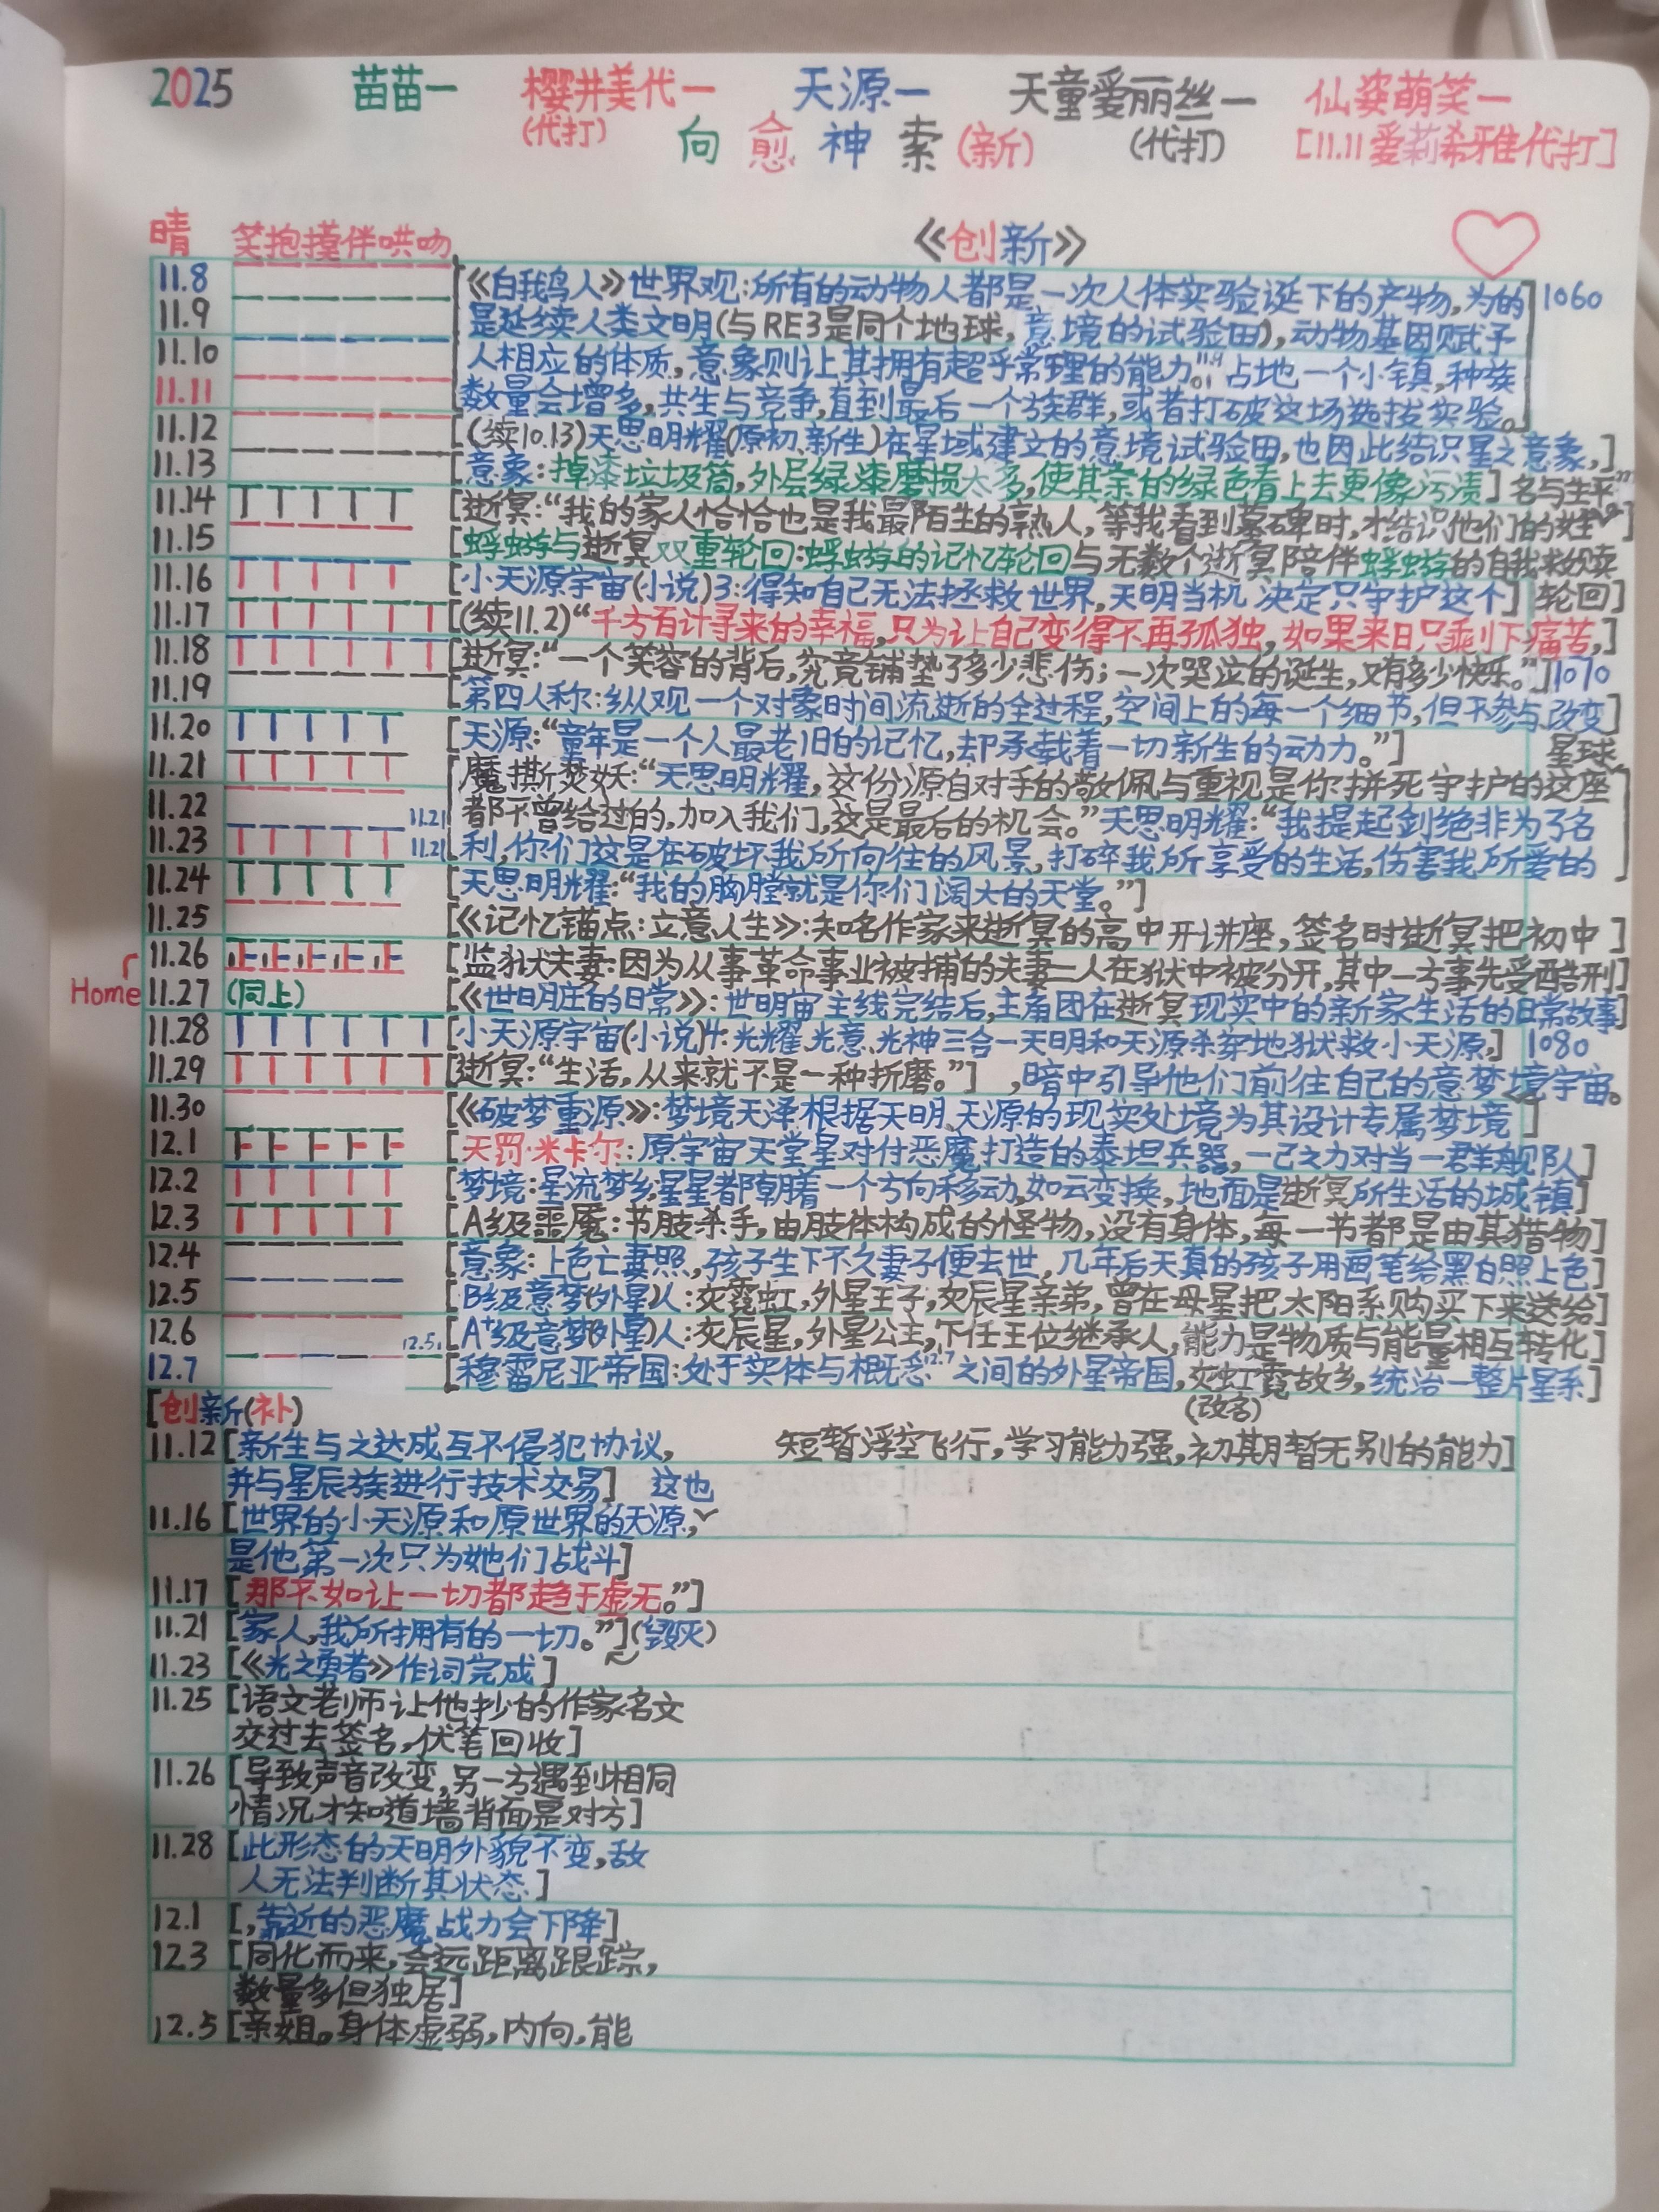 2025 苗苗一 樱井美代一 天源一 天童爱丽丝一 仙姿萌笑一
(代打) 向愈神索(新) (代打) [11.11爱莉希雅代打]
晴 笑抱摸伴哄吻 《创新》
11.8 [《白我鸟人》世界观:所有的动物人都是一次人体实验诞下的产物,为的 1060
11.9 是延续人类文明(与RE3是同个地球,意境的试验田),动物基因赋予
11.10 人相应的体质,意象则让其拥有超乎常理的能力。占地一个小镇,种族
11.11 数量会增多,共生与竞争,直到最后一个族群,或者打破这场选拔实验。]
11.12 [(续10.13)天思明耀(原初、新生)在星域建立的意境试验田,也因此结识星之意象,]
11.13 [意象:掉漆垃圾筒,外层绿漆磨损太多,使其余的绿色看上去更像污渍] 名与生平”
11.14 [逝冥:“我的家人恰恰也是我最陌生的熟人,等我看到墓碑时,才结识他们的姓]
11.15 [蜉蝣与逝冥双重轮回:蜉蝣的记忆轮回与无数个逝冥陪伴蜉蝣的自我救赎
11.16 [小天源宇宙(小说)3:得知自己无法拯救世界,天明当机 决定只守护这个] 轮回]
11.17 [(续11.2)“千方百计寻来的幸福,只为让自己变得不再孤独,如果来日只剩下痛苦,]
11.18 [逝冥:“一个笑容的背后,究竟铺垫了多少悲伤;一次哭泣的诞生,又有多少快乐。”] 1070
11.19 [第四人称:纵观一个对象时间流逝的全过程,空间上的每一个细节,但不参与、改变]
11.20 [天源:“童年是一个人最老旧的记忆,却承载着一切新生的动力。”] 星球
11.21 [魔撕焚妖:“天思明耀,这份源自对手的敬佩与重视是你拼死守护的这座
11.22 11.21 都不曾给过的,加入我们,这是最后的机会。”天思明耀:“我提起剑绝非为了名
11.23 11.21 利,你们这是在破坏我所向往的风景,打碎我所享受的生活,伤害我所爱的]
11.24 [天思明耀:“我的胸膛就是你们阔大的天堂。”]
11.25 [《记忆锚点:立意人生》:知名作家来逝冥的高中开讲座,签名时逝冥把初中]
11.26 正正正正正 [监狱夫妻:因为从事革命事业被捕的夫妻二人在狱中被分开,其中一方事先受酷刑]
Home 11.27 (同上) [《世明庄的日常》:世明宙主线完结后,主角团在逝冥现实中的新家生活的日常故事]
11.28 [小天源宇宙(小说)4:光耀、光意、光神三合一天明和天源杀穿地狱救小天源,] 1080
11.29 [逝冥:“生活,从来就不是一种折磨。”] ,暗中引导他们前往自己的意梦境宇宙。
11.30 [《破梦重源》:梦境天泽根据天明、天源的现实处境为其设计专属梦境]
12.1 [天罚·米卡尔:原宇宙天堂星对付恶魔打造的泰坦兵器,一己之力对当一群舰队]
12.2 [梦境:星流梦乡,星星都朝着一个方向移动,如云变换,地面是逝冥所生活的城镇]
12.3 [A级噩魔:节肢杀手,由肢体构成的怪物,没有身体,每一节都是由其猎物]
12.4 [意象:上色亡妻照,孩子生下不久妻子便去世,几年后天真的孩子用画笔给黑白照上色]
12.5 [B级意梦(外星)人:灾霓虹,外星王子,灾辰星亲弟,曾在母星把太阳系购买下来送给]
12.6 12.5 [A⁺级意梦(外星)人:灾辰星,外星公主,下任王位继承人,能力是物质与能量相互转化]
12.7 [穆雷尼亚帝国:处于实体与概念12.7之间的外星帝国,灾虹霓故乡,统治一整片星系]
[创新(补) (改名)
11.12 [新生与之达成互不侵犯协议, 短暂浮空飞行,学习能力强,初期暂无别的能力]
并与星辰族进行技术交易] 这也
11.16 [世界的小天源和原世界的天源,
是他第一次只为她们战斗]
11.17 [那不如让一切都趋于虚无。”]
11.21 [家人,我所拥有的一切。”](毁灭)
11.23 [《光之勇者》作词完成]
11.25 [语文老师让他抄的作家名文
交过去签名,伏笔回收]
11.26 [导致声音改变,另一方遇到相同
情况才知道墙背面是对方]
11.28 [此形态的天明外貌不变,敌
人无法判断其状态]
12.1 [,靠近的恶魔战力会下降]
12.3 [同化而来,会远距离跟踪,
数量多但独居]
12.5 [亲姐。身体虚弱,内向,能